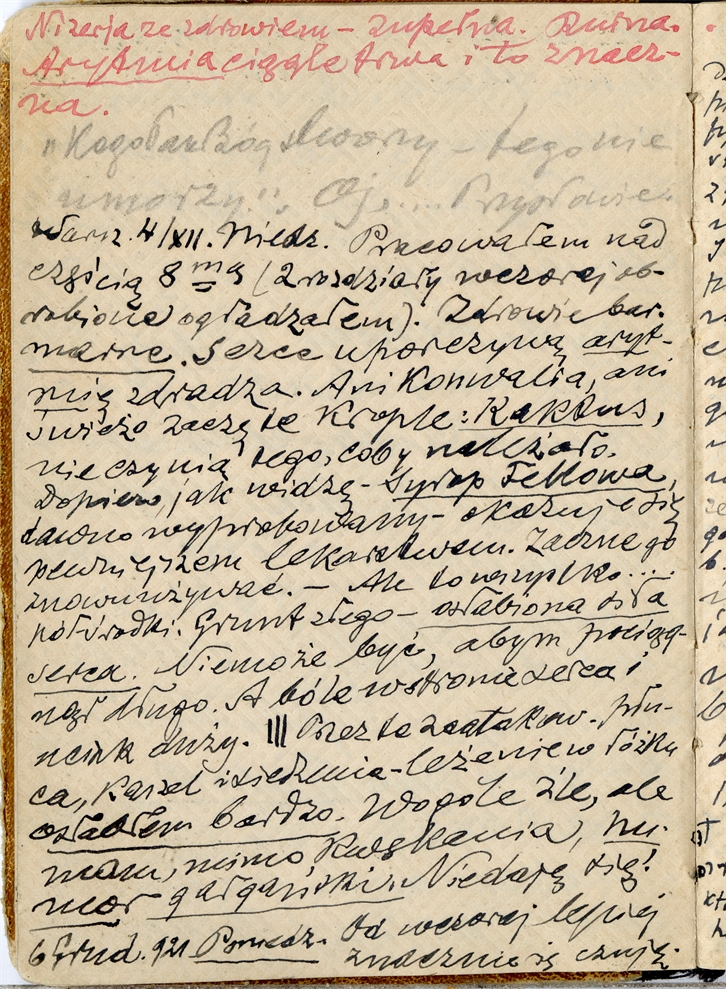 Mizerja ze zdrowiem – zupełna. Ruina.
Arytmia ciągle trwa i to znacz-
na.
"Kogo Pan Bóg stworzy – tego nie
umorzy". Oj.... Przysłowie.
Warsz. 4/XII. Niedz. Pracowałem nad
częścią 8 mą (2 rozdziały wczoraj ob-
robione ogładzałem). Zdrowie bar.
marne. Serce uporczywą aryt-
mię zdradza. Ani Konwalia, ani
świeżo zaczęte Krople: Kaktus,
nie czynią tego, coby należało.
Dopiero, jak widzę – Syrop Fellowa,
dawno wypróbowany – okazuje się
pewniejszem lekarstwem. Zacznę go
znowu używać. – Ale to wszystko....
półśrodki. Grunt złego – osłabiona siła
serca. Niemoże być, abym pociąg-
nął długo. A bóle w stronie serca i
ucisk duży. ||| Przez te zaatakow. płu-
ca, kaszel i siedzenia-leżenie w łóżku
osłabłem bardzo. Wogóle źle, ale
mam, mimo kwękania, hu-
mor gargański. Niedaję się!
6 Grud. 921 Poniedz. Od wczoraj lepiej
znacznie się czuję.